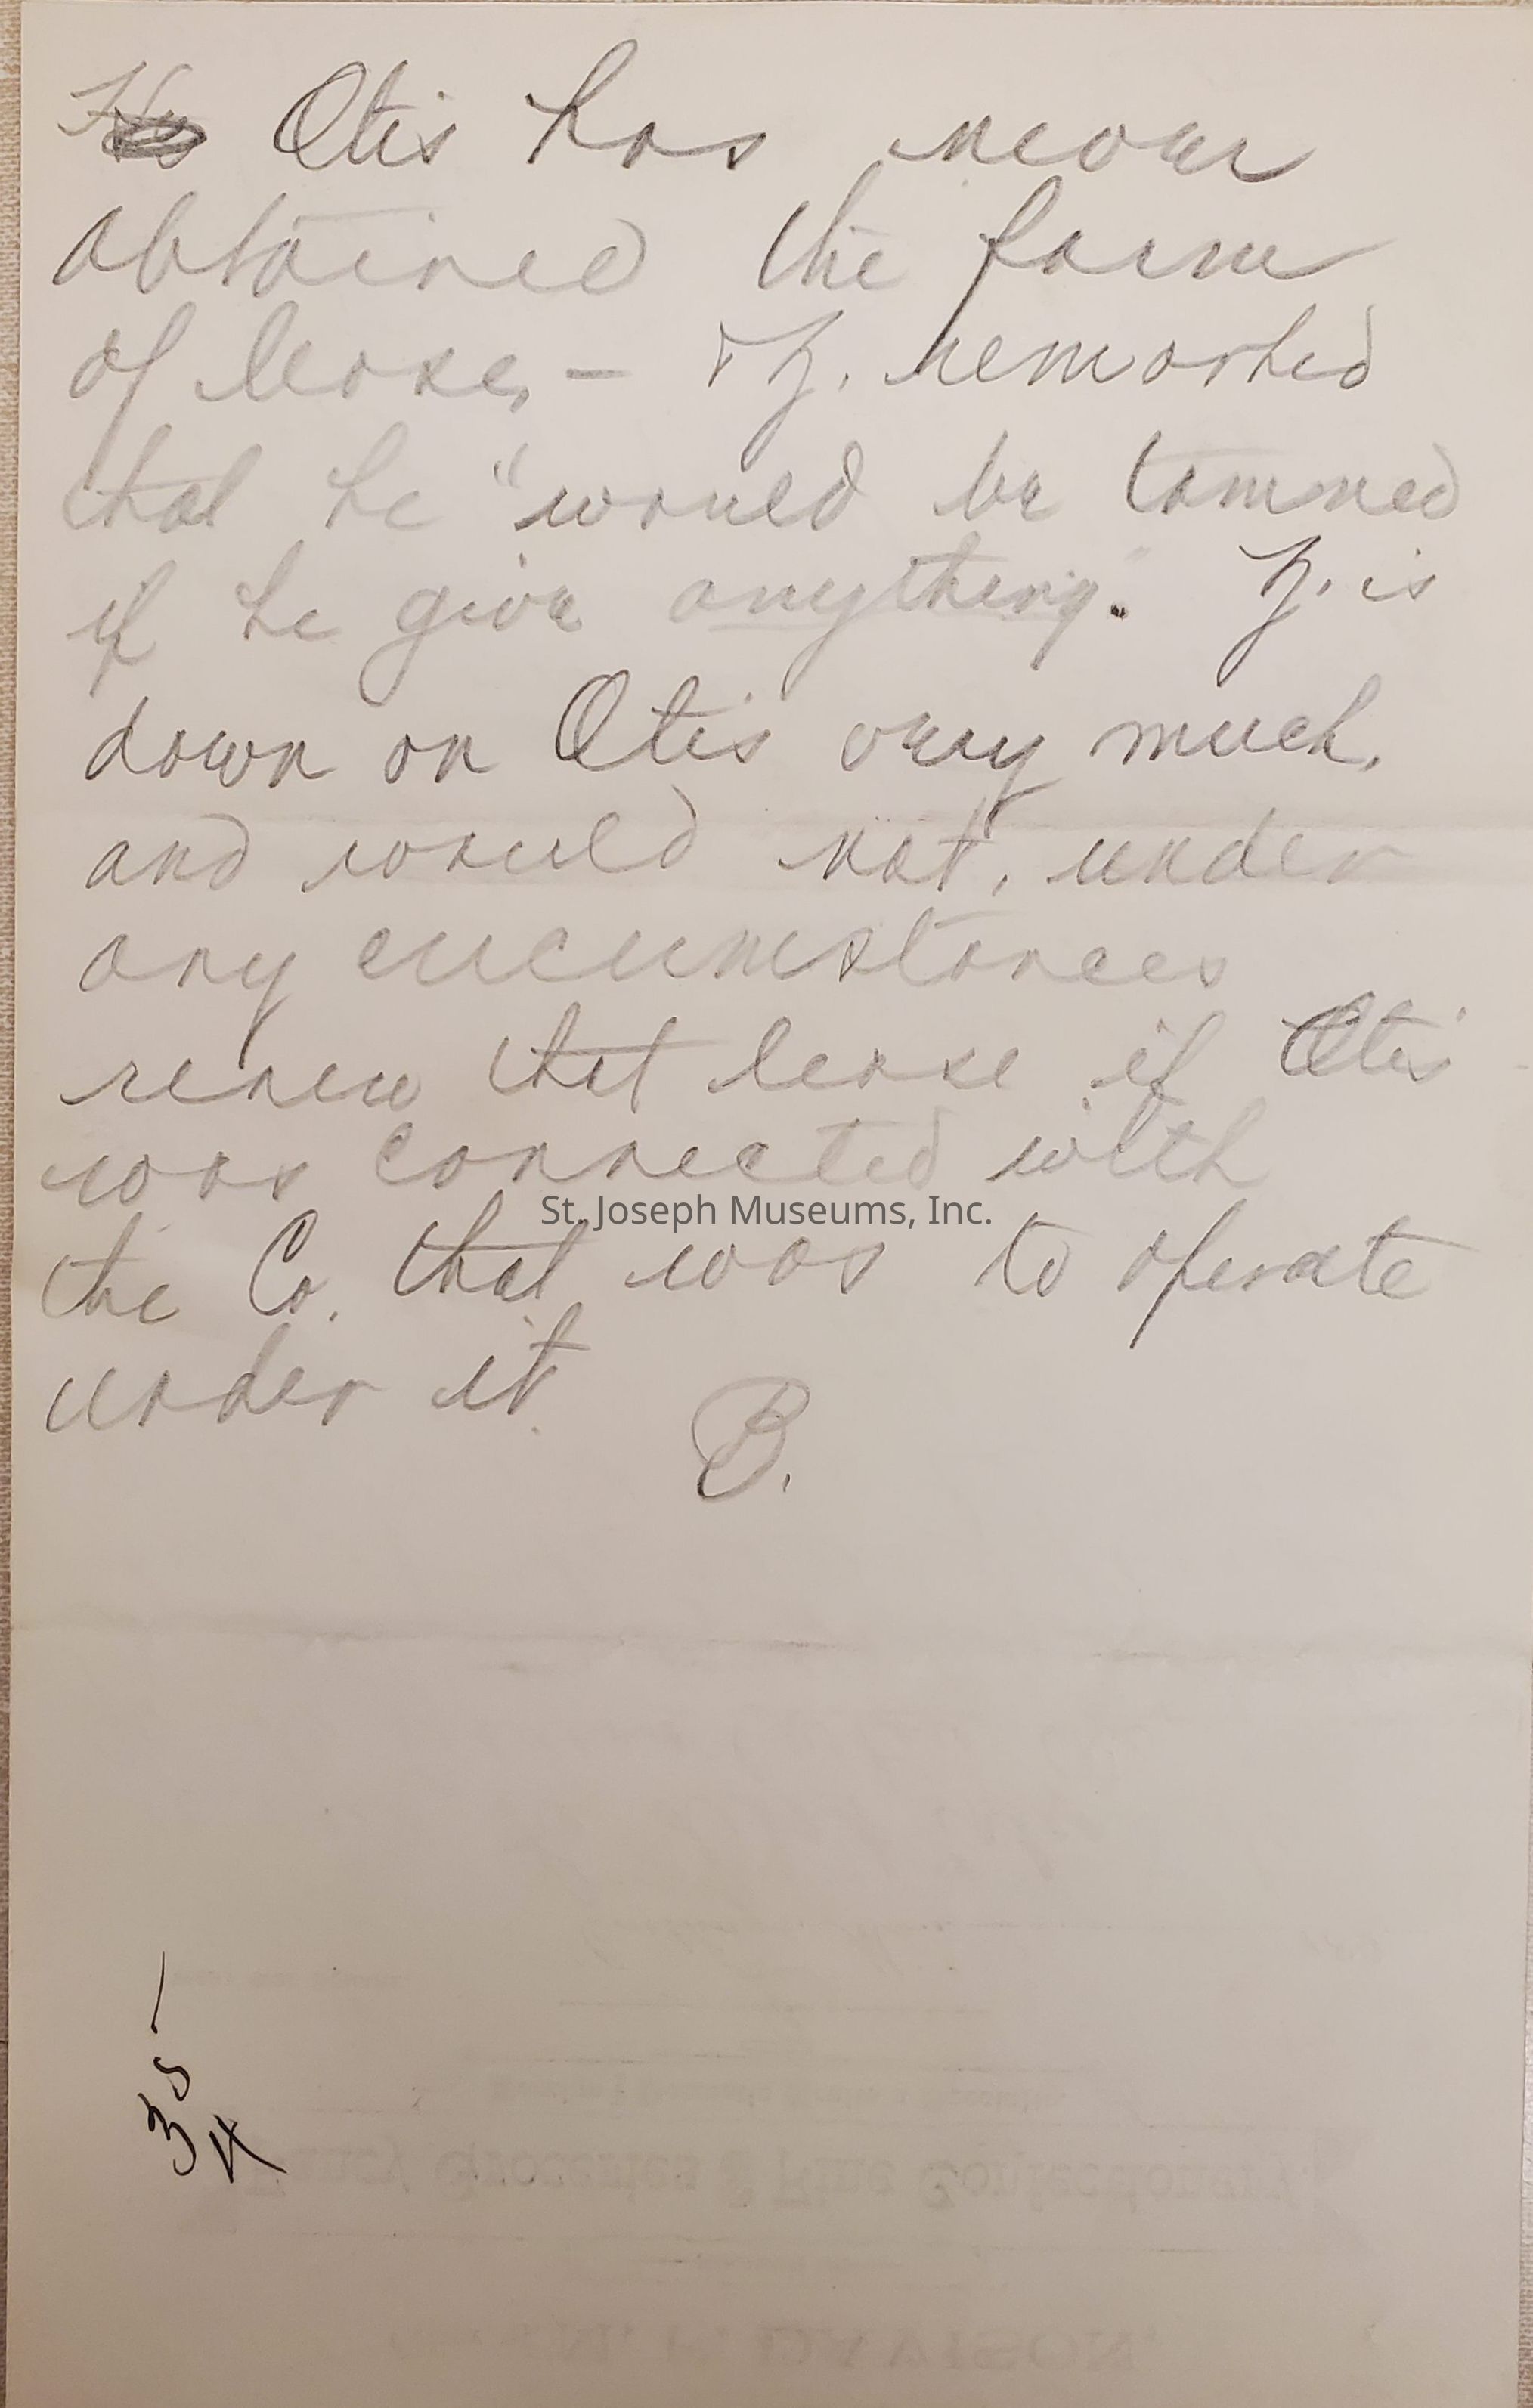 Otis has never
obtained the form
of lease, — & Z. remarked
that he "would be tammed
if he give anything." Z. is
down on Otis very much,
and would not, under
any circumstances
renew that lease if Otis
was connected with
St. Joseph Museums, Inc.
the Co. that was to operate
under it.
B.